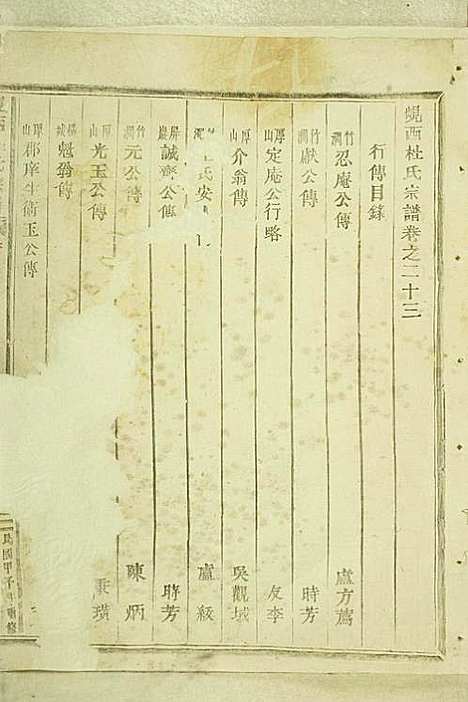 峴西杜氏宗譜卷之二十三
行傳目錄
竹澗 忍庵公傳 盧方薦
竹澗 獻公傳 時芳
厚山 定庵公行略 友李
厚山 介翁傳 吳觀城
氏安 盧級
屏巖 誠齋公傳 時芳
竹澗 元公傳 陳炳
厚山 光玉公傳 璜
橫城 魁翁傳
厚山 郡庠生衛玉公傳
民國甲子